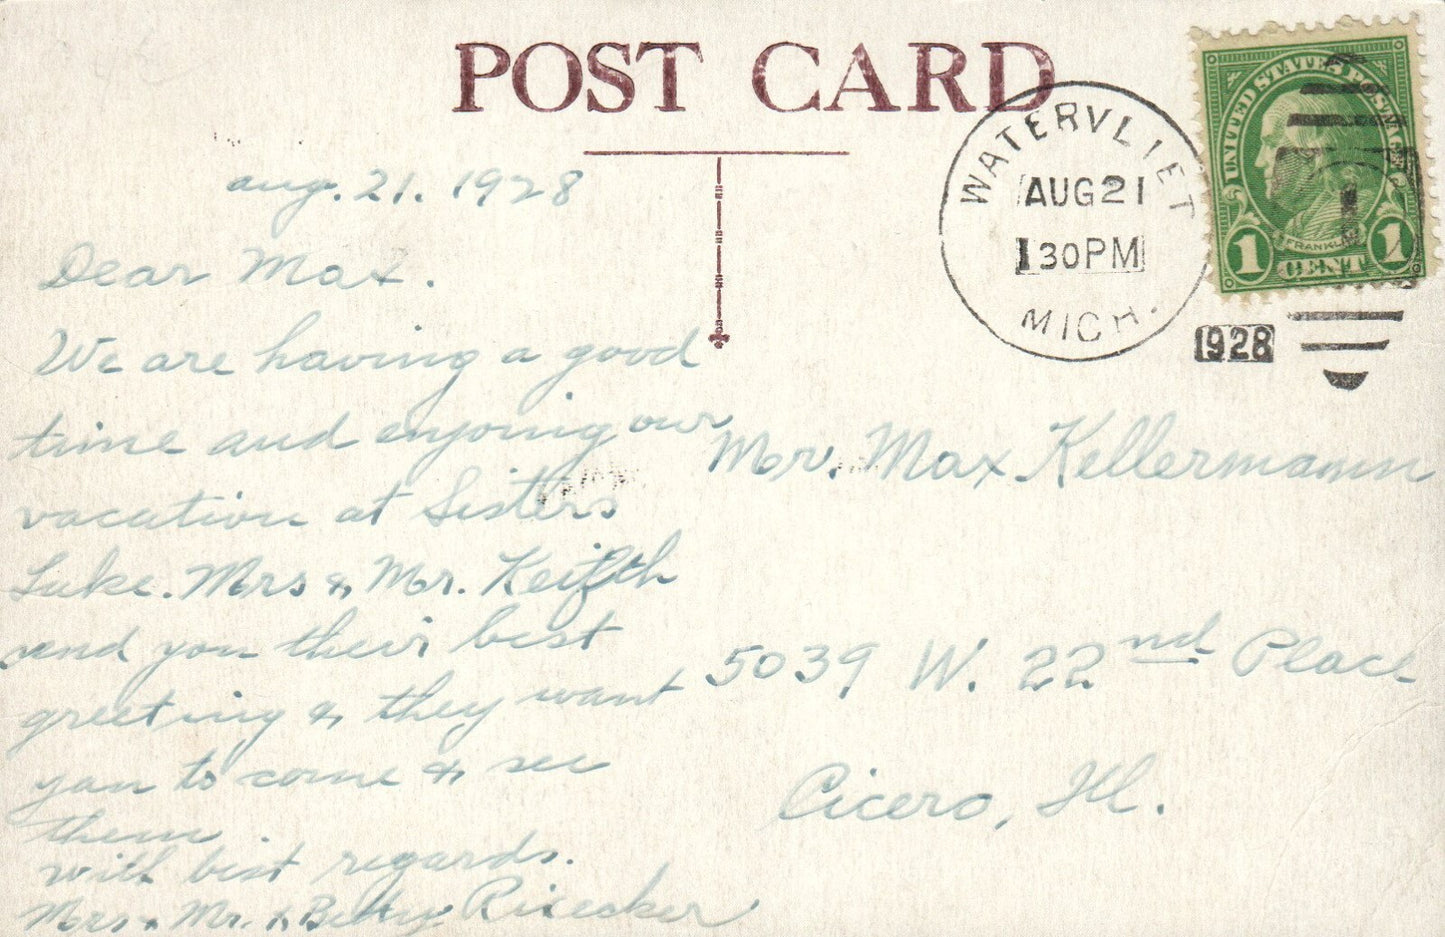 POST CARD
WATERVLIET
AUG 21
1 30 PM
MICH.
1928
UNITED STATES POSTAGE
FRANKLIN
1 CENT 1
Aug. 21. 1928
Dear Max.
We are having a good
time and enjoing our
vacation at Sisters
Lake. Mrs & Mr. Keifth
send you their best
greeting & they want
you to come & see
them.
with best regards.
Mrs & Mr. & Betty
Mr. Max Kellermann
5039 W. 22nd Place
Cicero, Ill.